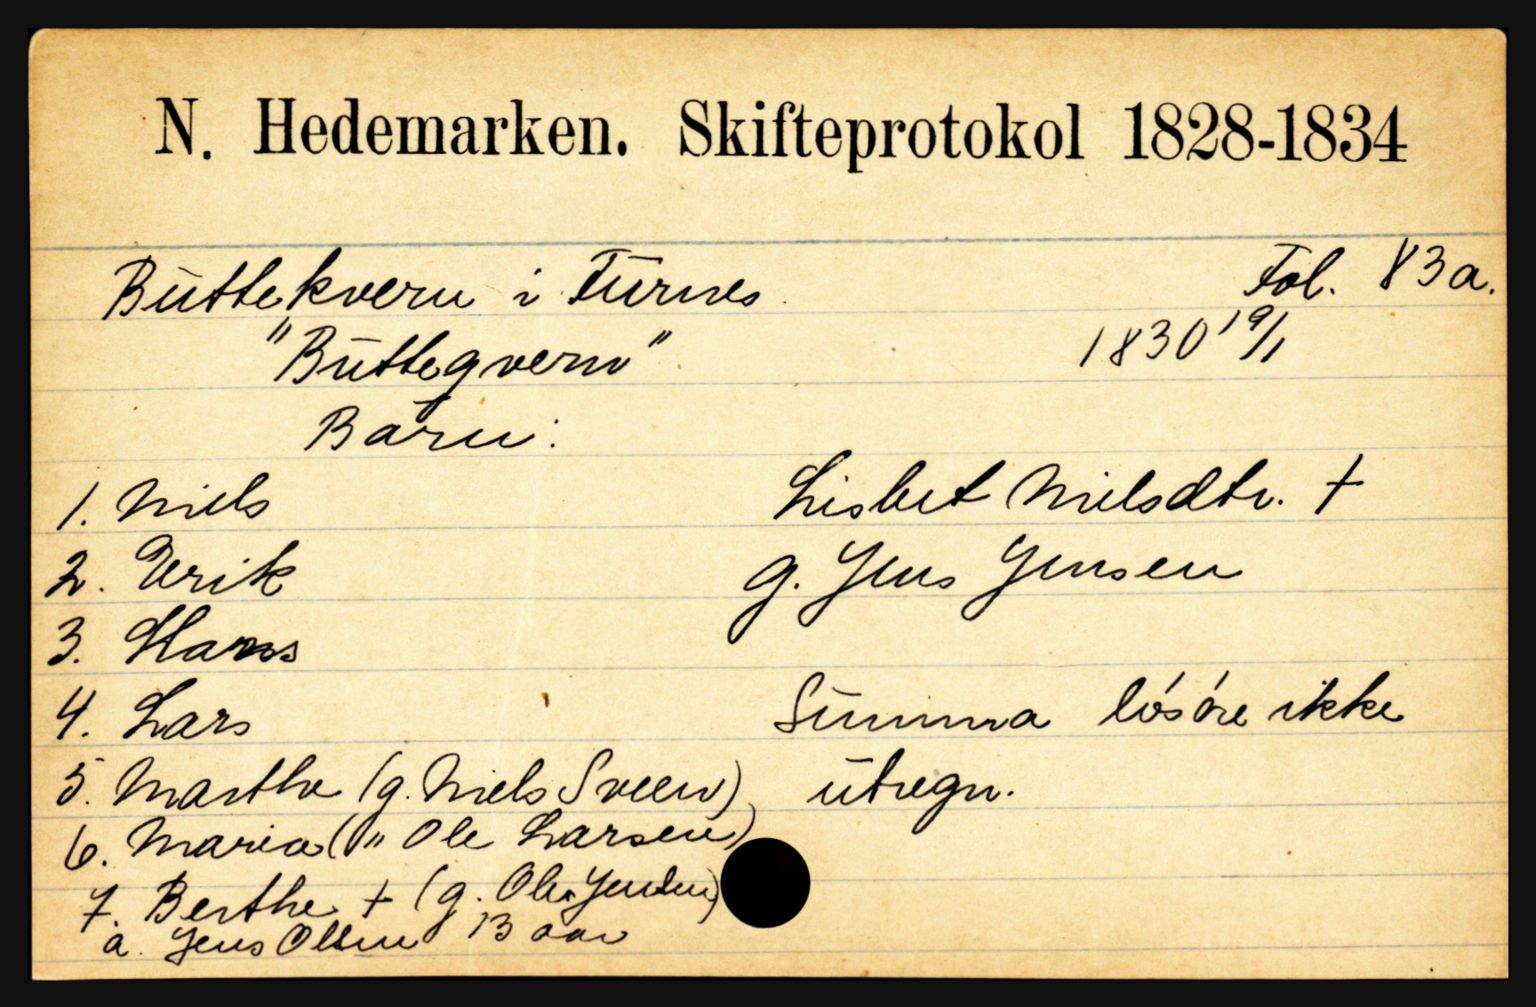 N. Hedemarken. Skifteprotokol 1828-1834
Buttekvern i Furnes Fol. 83a.
"Buttegvern" 1830 19/1
Barn:
1. Niels Lisbet Nielsdtr. †
2. Erik g. Jens Jensen
3. Hans
4. Lars Summa lösöre ikke
5. Marthe (g. Niels Sveen) utregn.
6. Maria (" Ole Larsen)
7. Berthe † (g. Ole Jensen)
a. Jens Olsen 13 aar